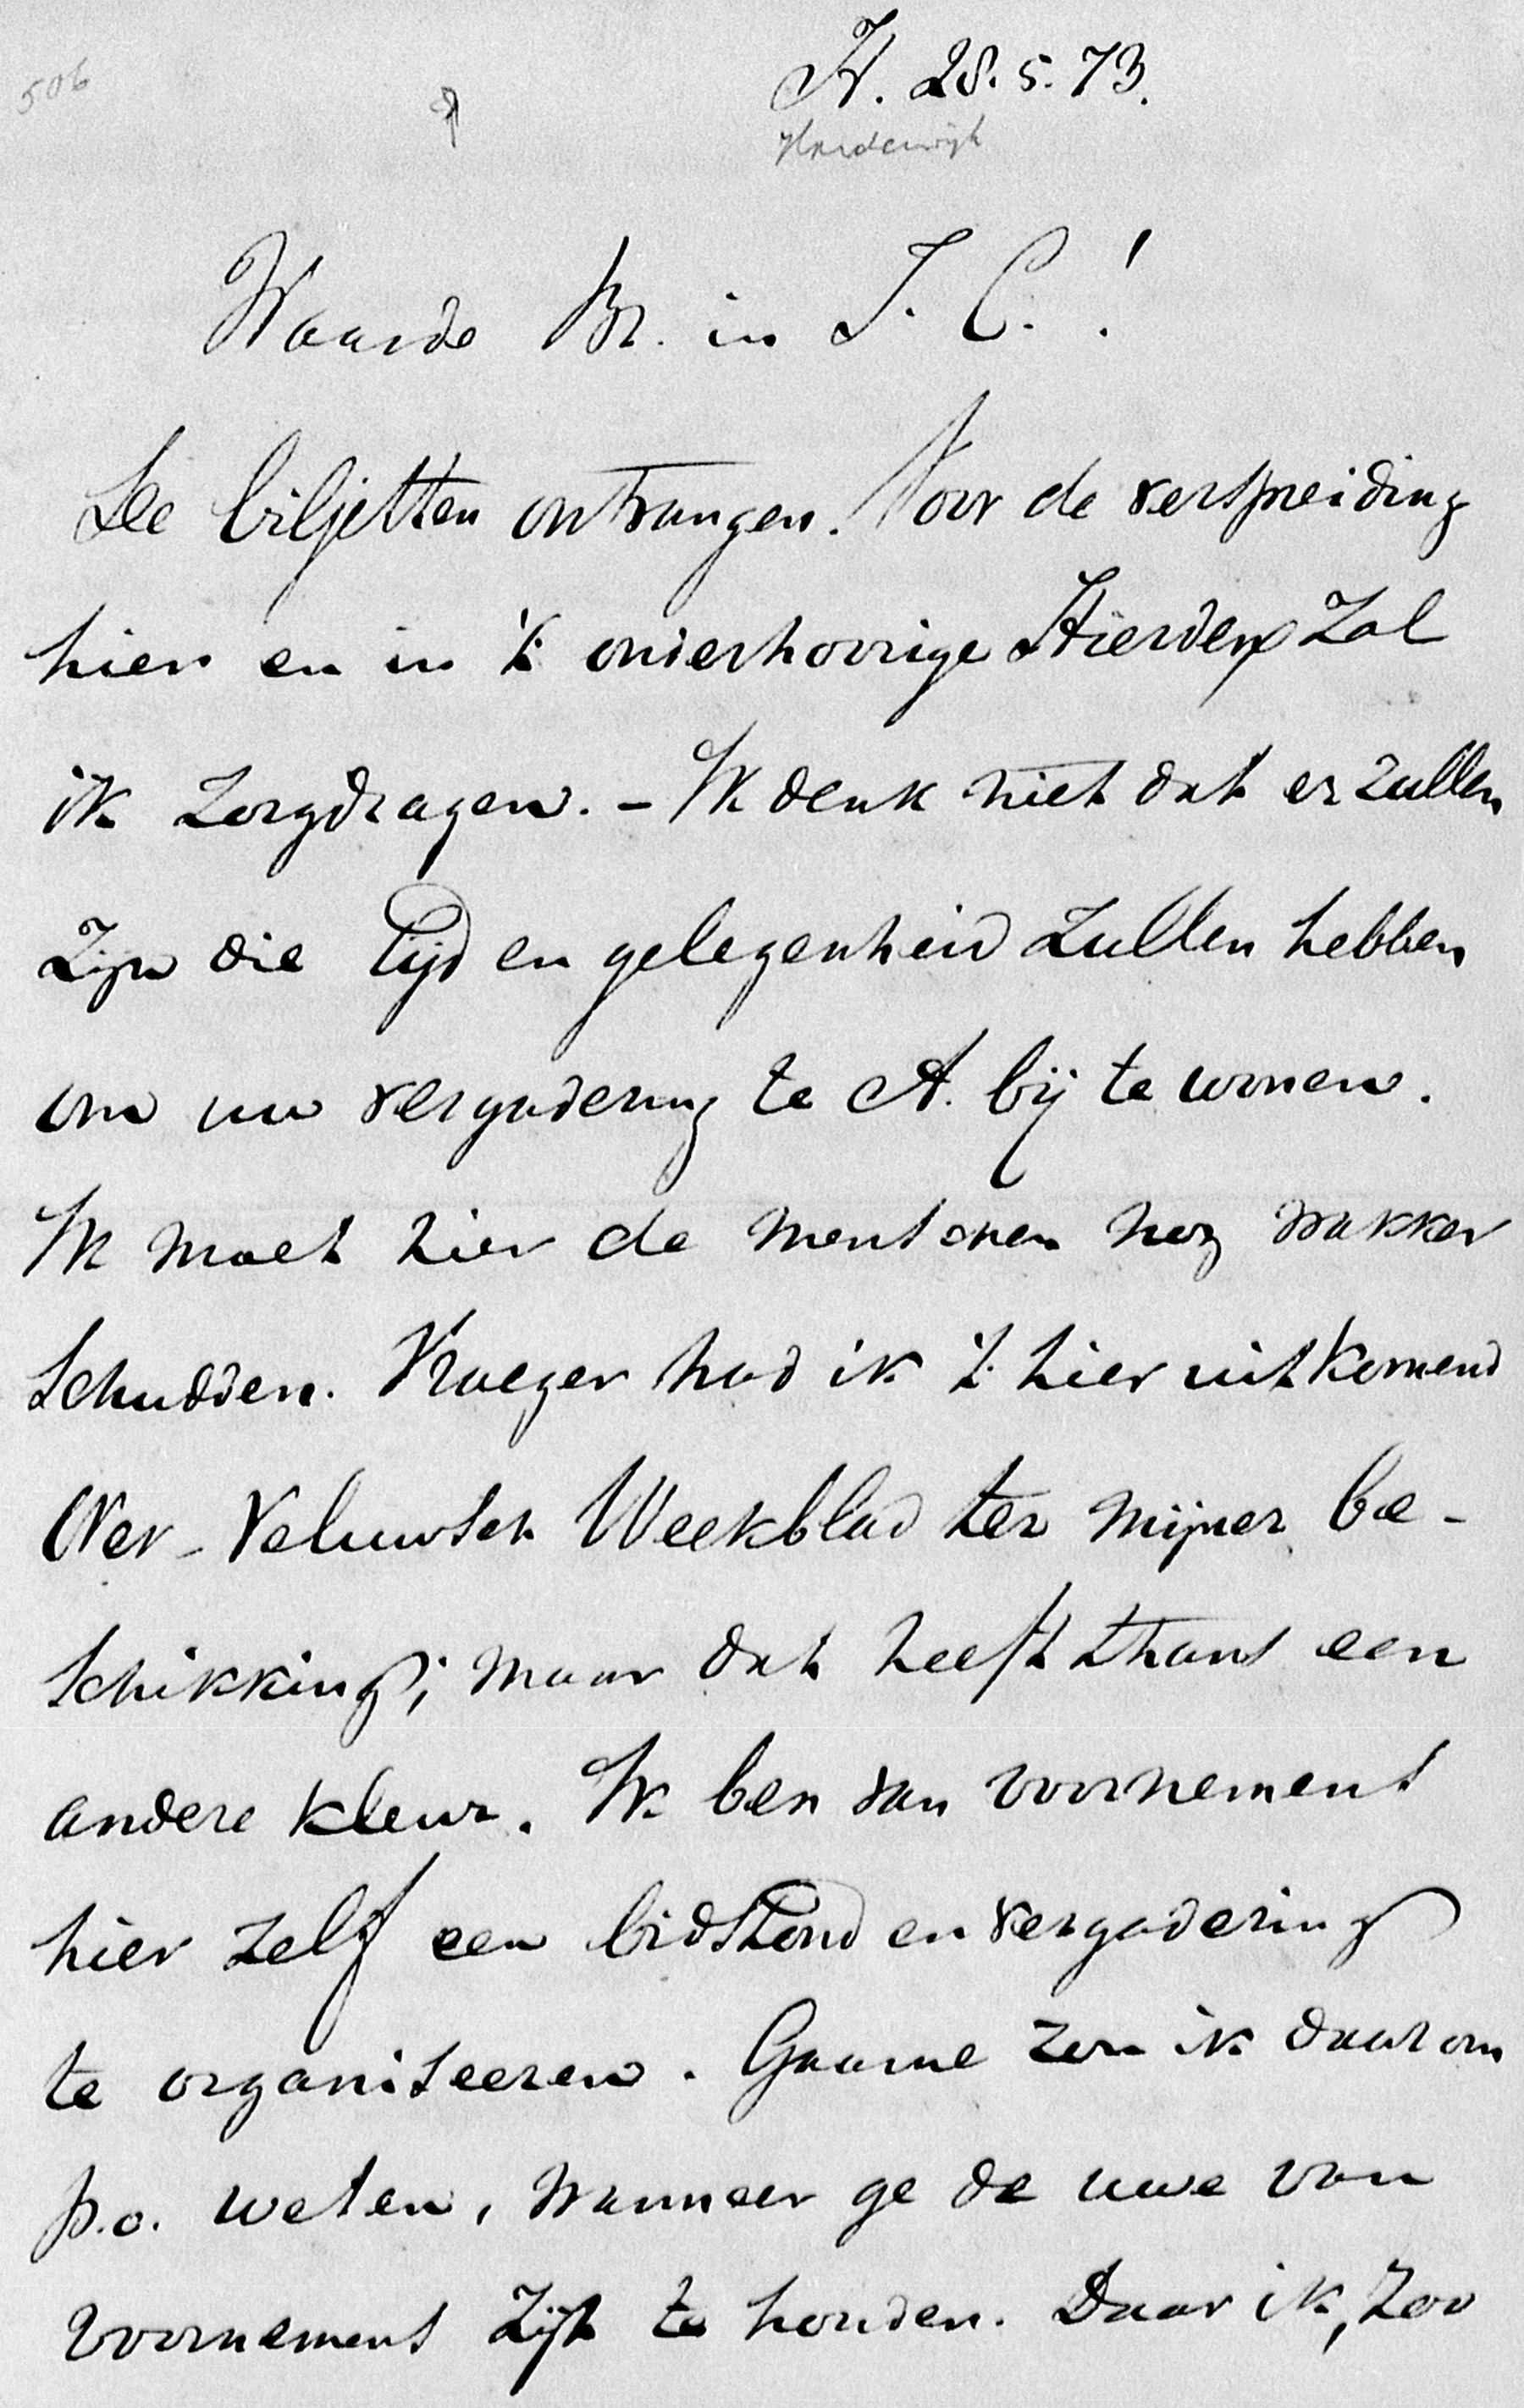 506
H. 28.5.73.
Harderwijk
Waarde Br. in J. C.!
De biljetten ontvangen. Voor de verspreiding
hier en in 't onderhoorige Hierden zal
ik zorgdragen. - Ik denk niet dat er zullen
zijn die tijd en gelegenheid zullen hebben
om uw vergadering te A. bij te wonen.
Ik moet hier de menschen nog wakker
schudden. Vroeger had ik 't hier uitkomend
Over-Veluwsch Weekblad ter mijner be-
schikking; maar dat heeft thans een
andere kleur. Ik ben van voornemens
hier zelf een bidstond en vergadering
te organiseeren. Gaarne zou ik daarom
p.o. weten, wanneer ge de uwe van
voornemens zijt te houden. Daar ik, zoo